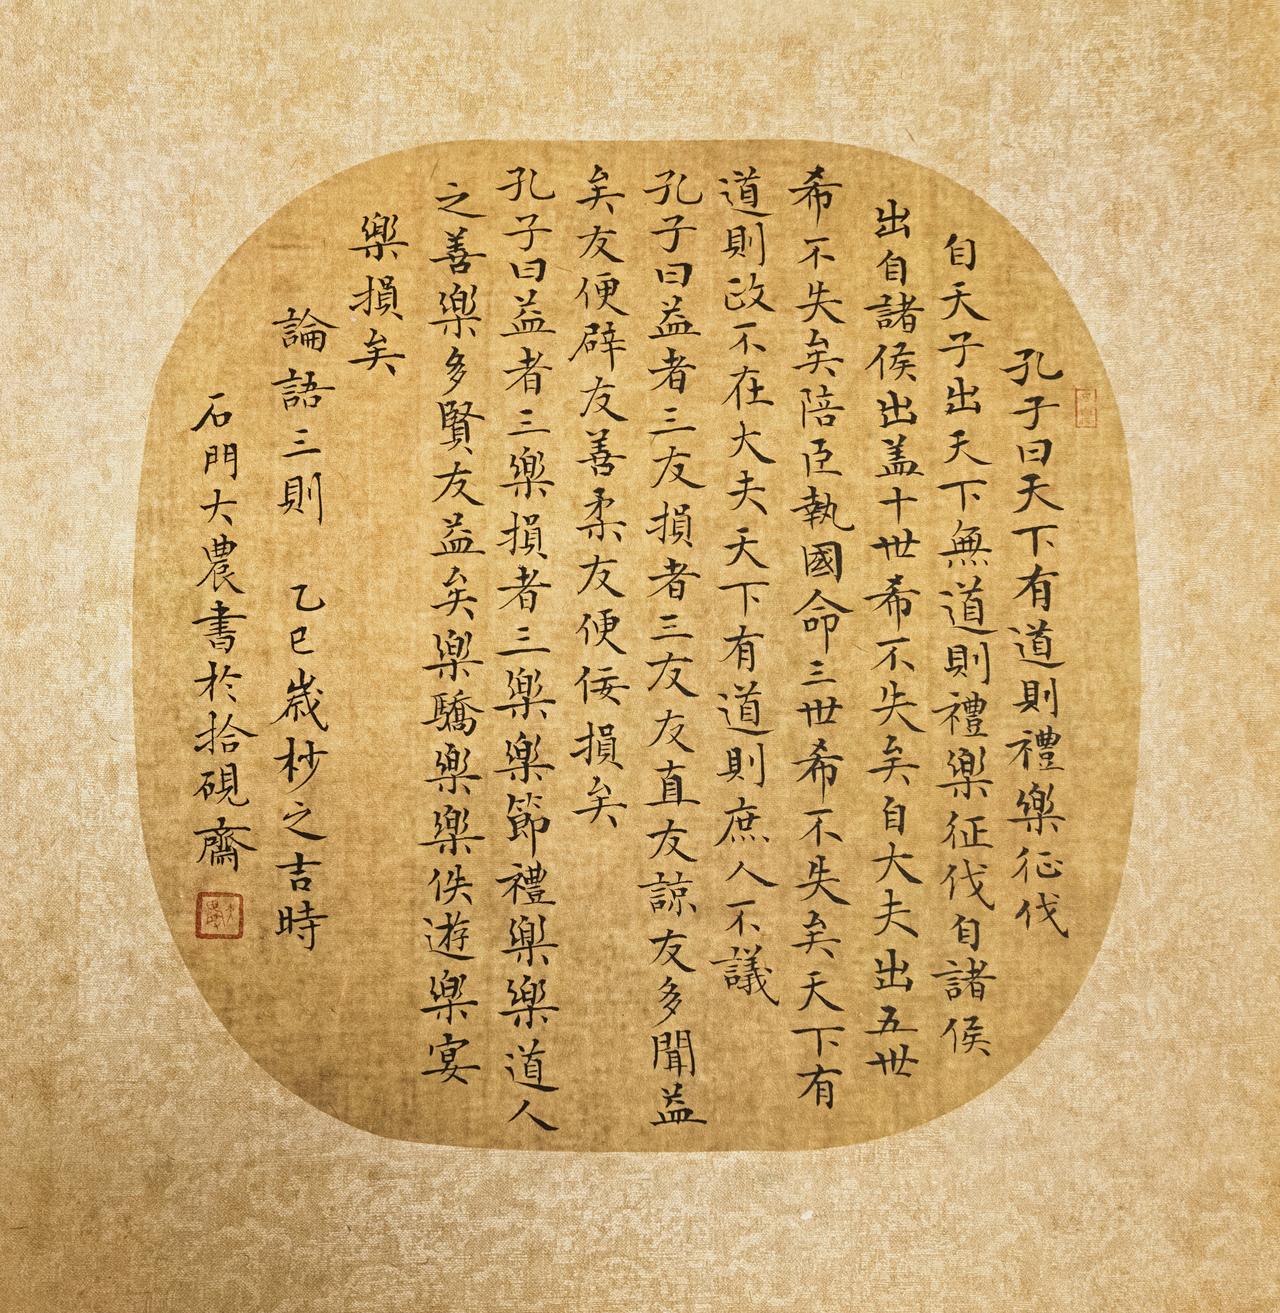 孔子曰天下有道則禮樂征伐
自天子出天下無道則禮樂征伐自諸侯
出自諸侯出盖十世希不失矣自大夫出五世
希不失矣陪臣執國命三世希不失矣天下有
道則政不在大夫天下有道則庶人不議
孔子曰益者三友損者三友友直友諒友多聞益
矣友便辟友善柔友便佞損矣
孔子曰益者三樂損者三樂樂節禮樂樂道人
之善樂多賢友益矣樂驕樂樂佚遊樂宴
樂損矣
論語三則 乙巳歲杪之吉時
石門大農書於拾硯齋